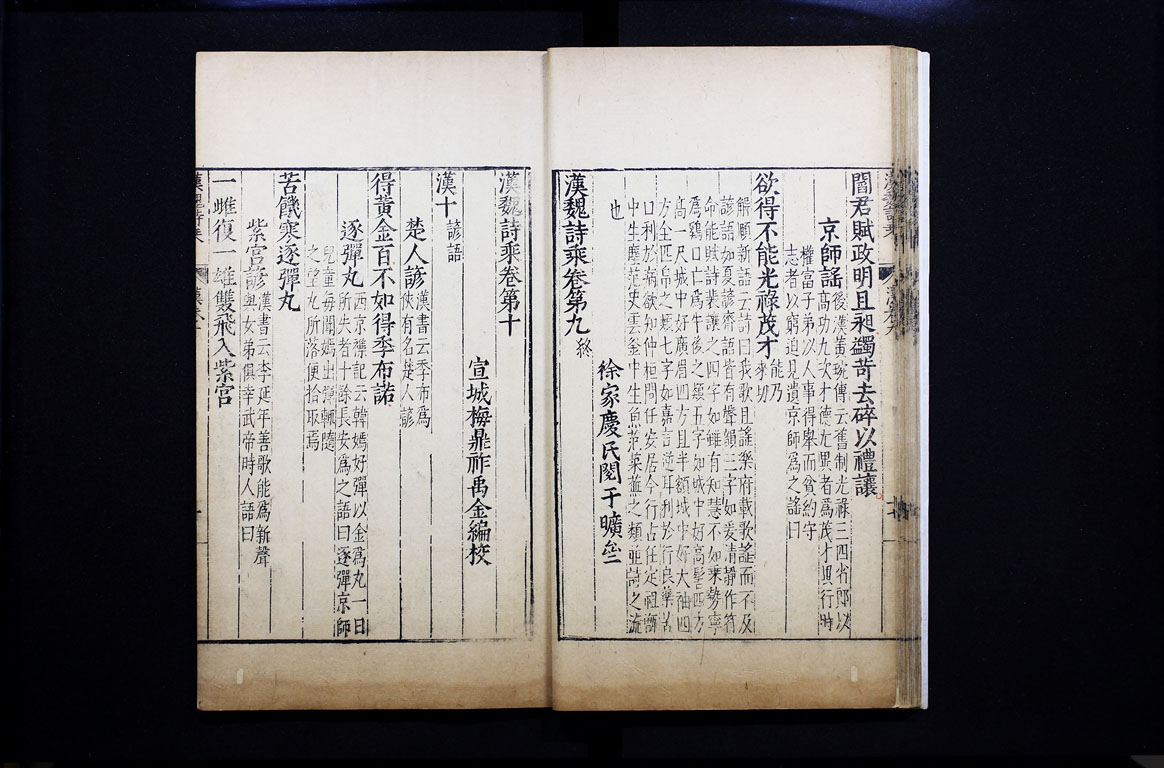 閻君賦政明且昶蠲苛去碎以禮讓
京師謠
後漢黃琬傳云舊制光祿三四省郎以
高功久次才德尤異者為茂才異行時
權富子弟以人事得舉而貧約守
志者以窮迫見遺京師為之謠曰
欲得不能光祿茂才
能乃
來切
解頤新語云詩曰我歌且謠樂府載歌謠而不及
諺語如夏諺齊語皆有聲韻三字如爰清靜作符
命能賦詩裴讓之四字如雖有知慧不如乗勢寧
為鷄口亡為牛後之類五字如城中好高髻四方
高一尺城中好廣眉四方且半額城中好大袖四
方全匹帛之類七字如嘉言逆耳利於行良藥苦
口利於病欲知仲桓問任安居今行古任定祖甑
中生塵范史雲釜中生魚范萊蕪之類並詩之流
也
徐家慶民閱于曠
漢魏詩乘卷第九
終
漢魏詩乘卷第十
宣城梅鼎祚禹金編校
漢十
諺語
楚人諺
漢書云季布為
俠有名楚人諺
得黃金百不如得季布諾
逐彈丸
西京襍記云韓嫣好彈以金為丸一日
所失者十餘長安為之語曰逐彈京師
兒童每聞嫣出彈輒隨
之望丸所落便拾取焉
苦饑寒逐彈丸
紫宮諺
漢書云李延年善歌能為新聲
與女弟俱幸武帝時人語曰
一雌復一雄雙飛入紫宮